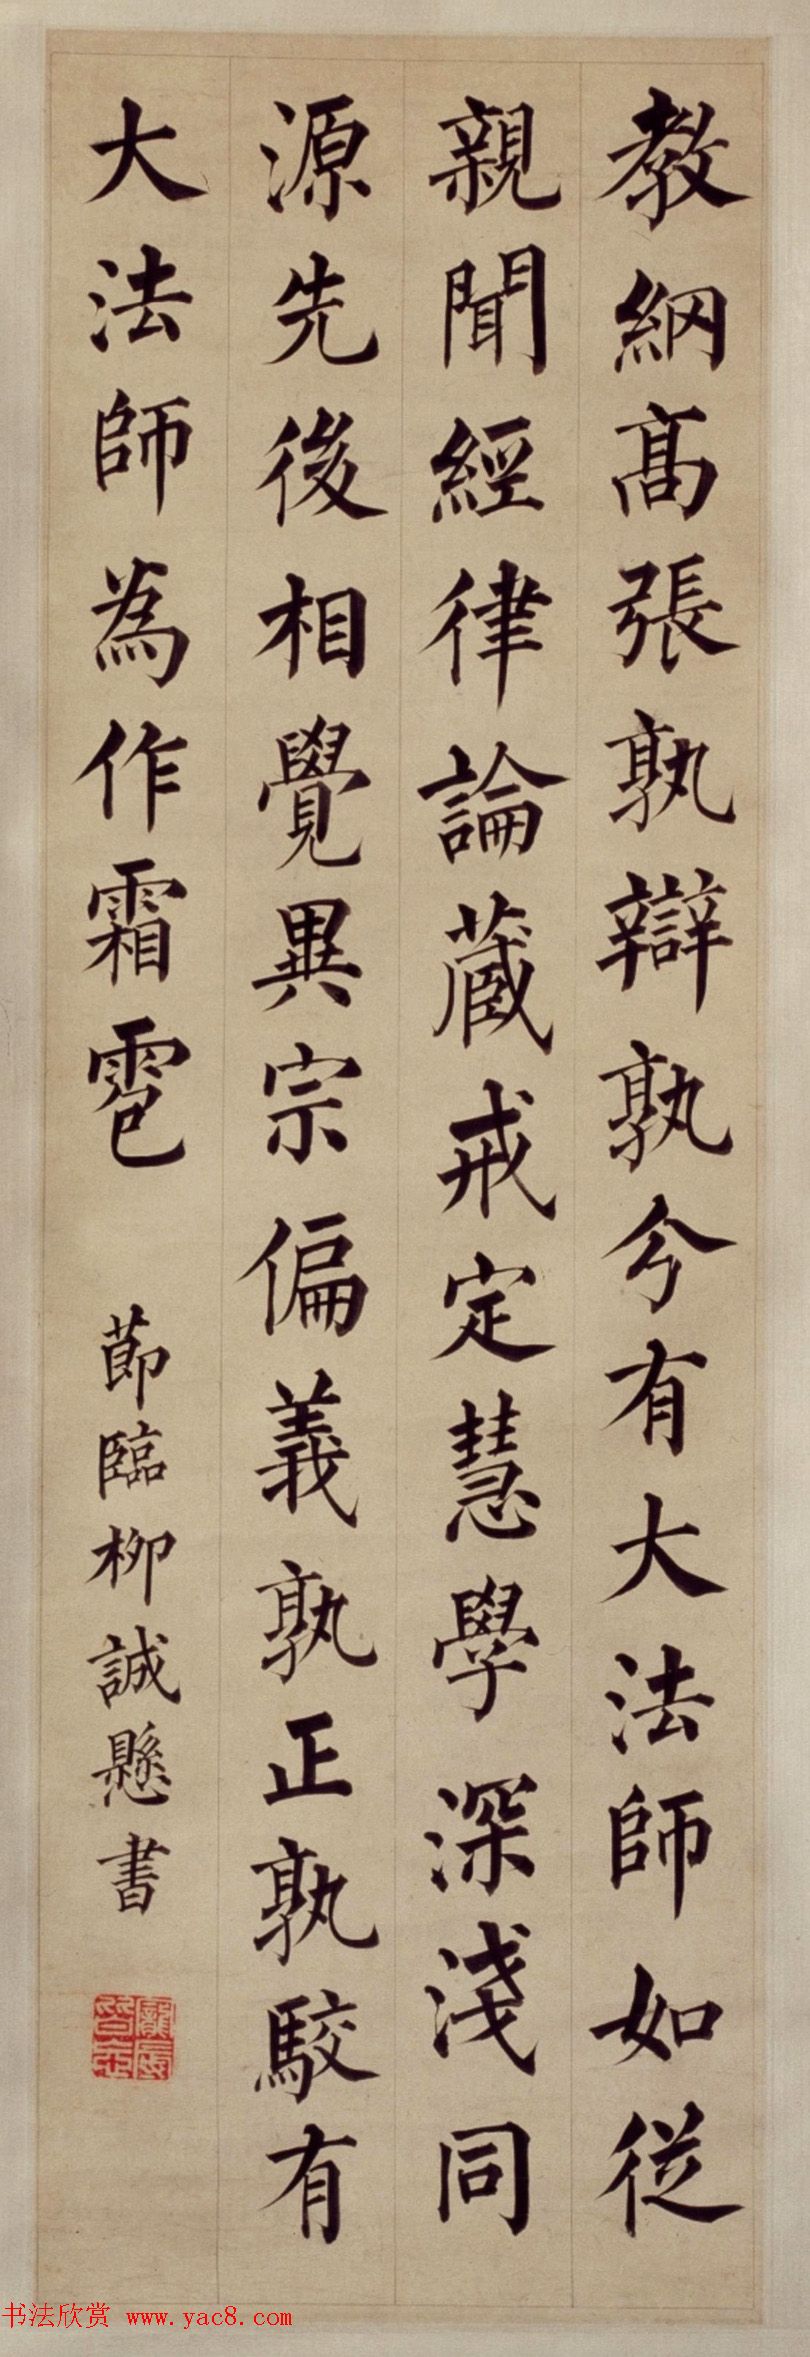 教網高張孰辯孰分有大法師如從
親聞經律論藏戒定慧學深淺同
源先後相覺異宗偏義孰正孰駮有
大法師為作霜雹
節臨柳誠懸書
书法欣赏 www.yac8.com